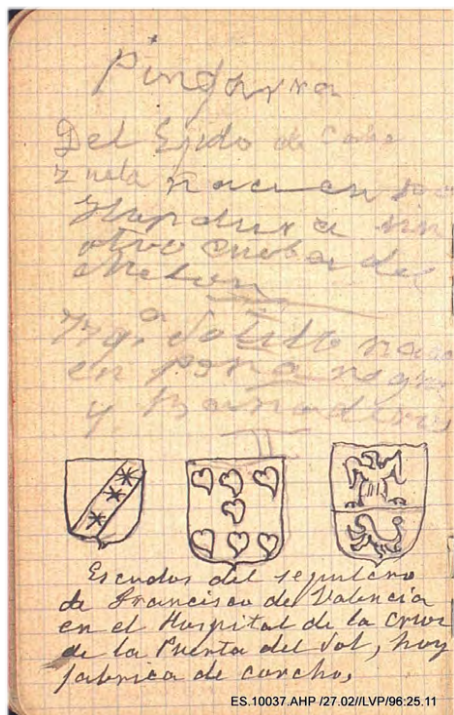 Pingarra
Del Ejido de Caña
zuela nace en
otro
Melon
Bª Sotillo nace
en peña negra
y
Escudos del sepulcro
de Francisco de Valencia
en el Hospital de la Cruz
de la Puerta del Sol, hoy
fabrica de corcho,
ES.10037.AHP /27.02//LVP/96:25.11